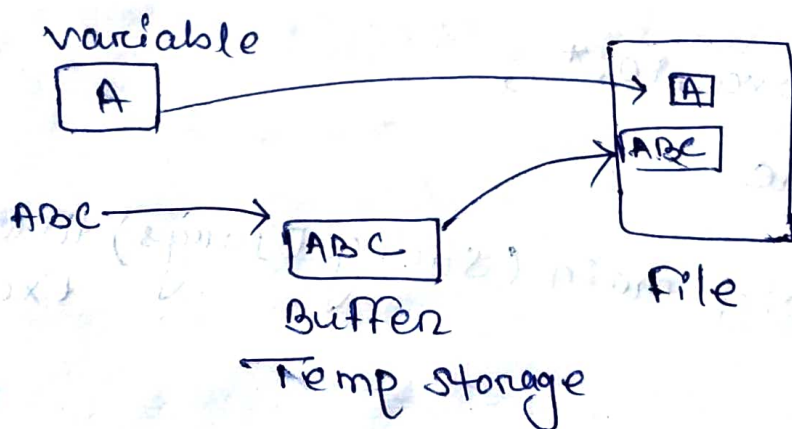 variable
A
A
ABC
ABC
ABC
File
Buffer
Temp storage